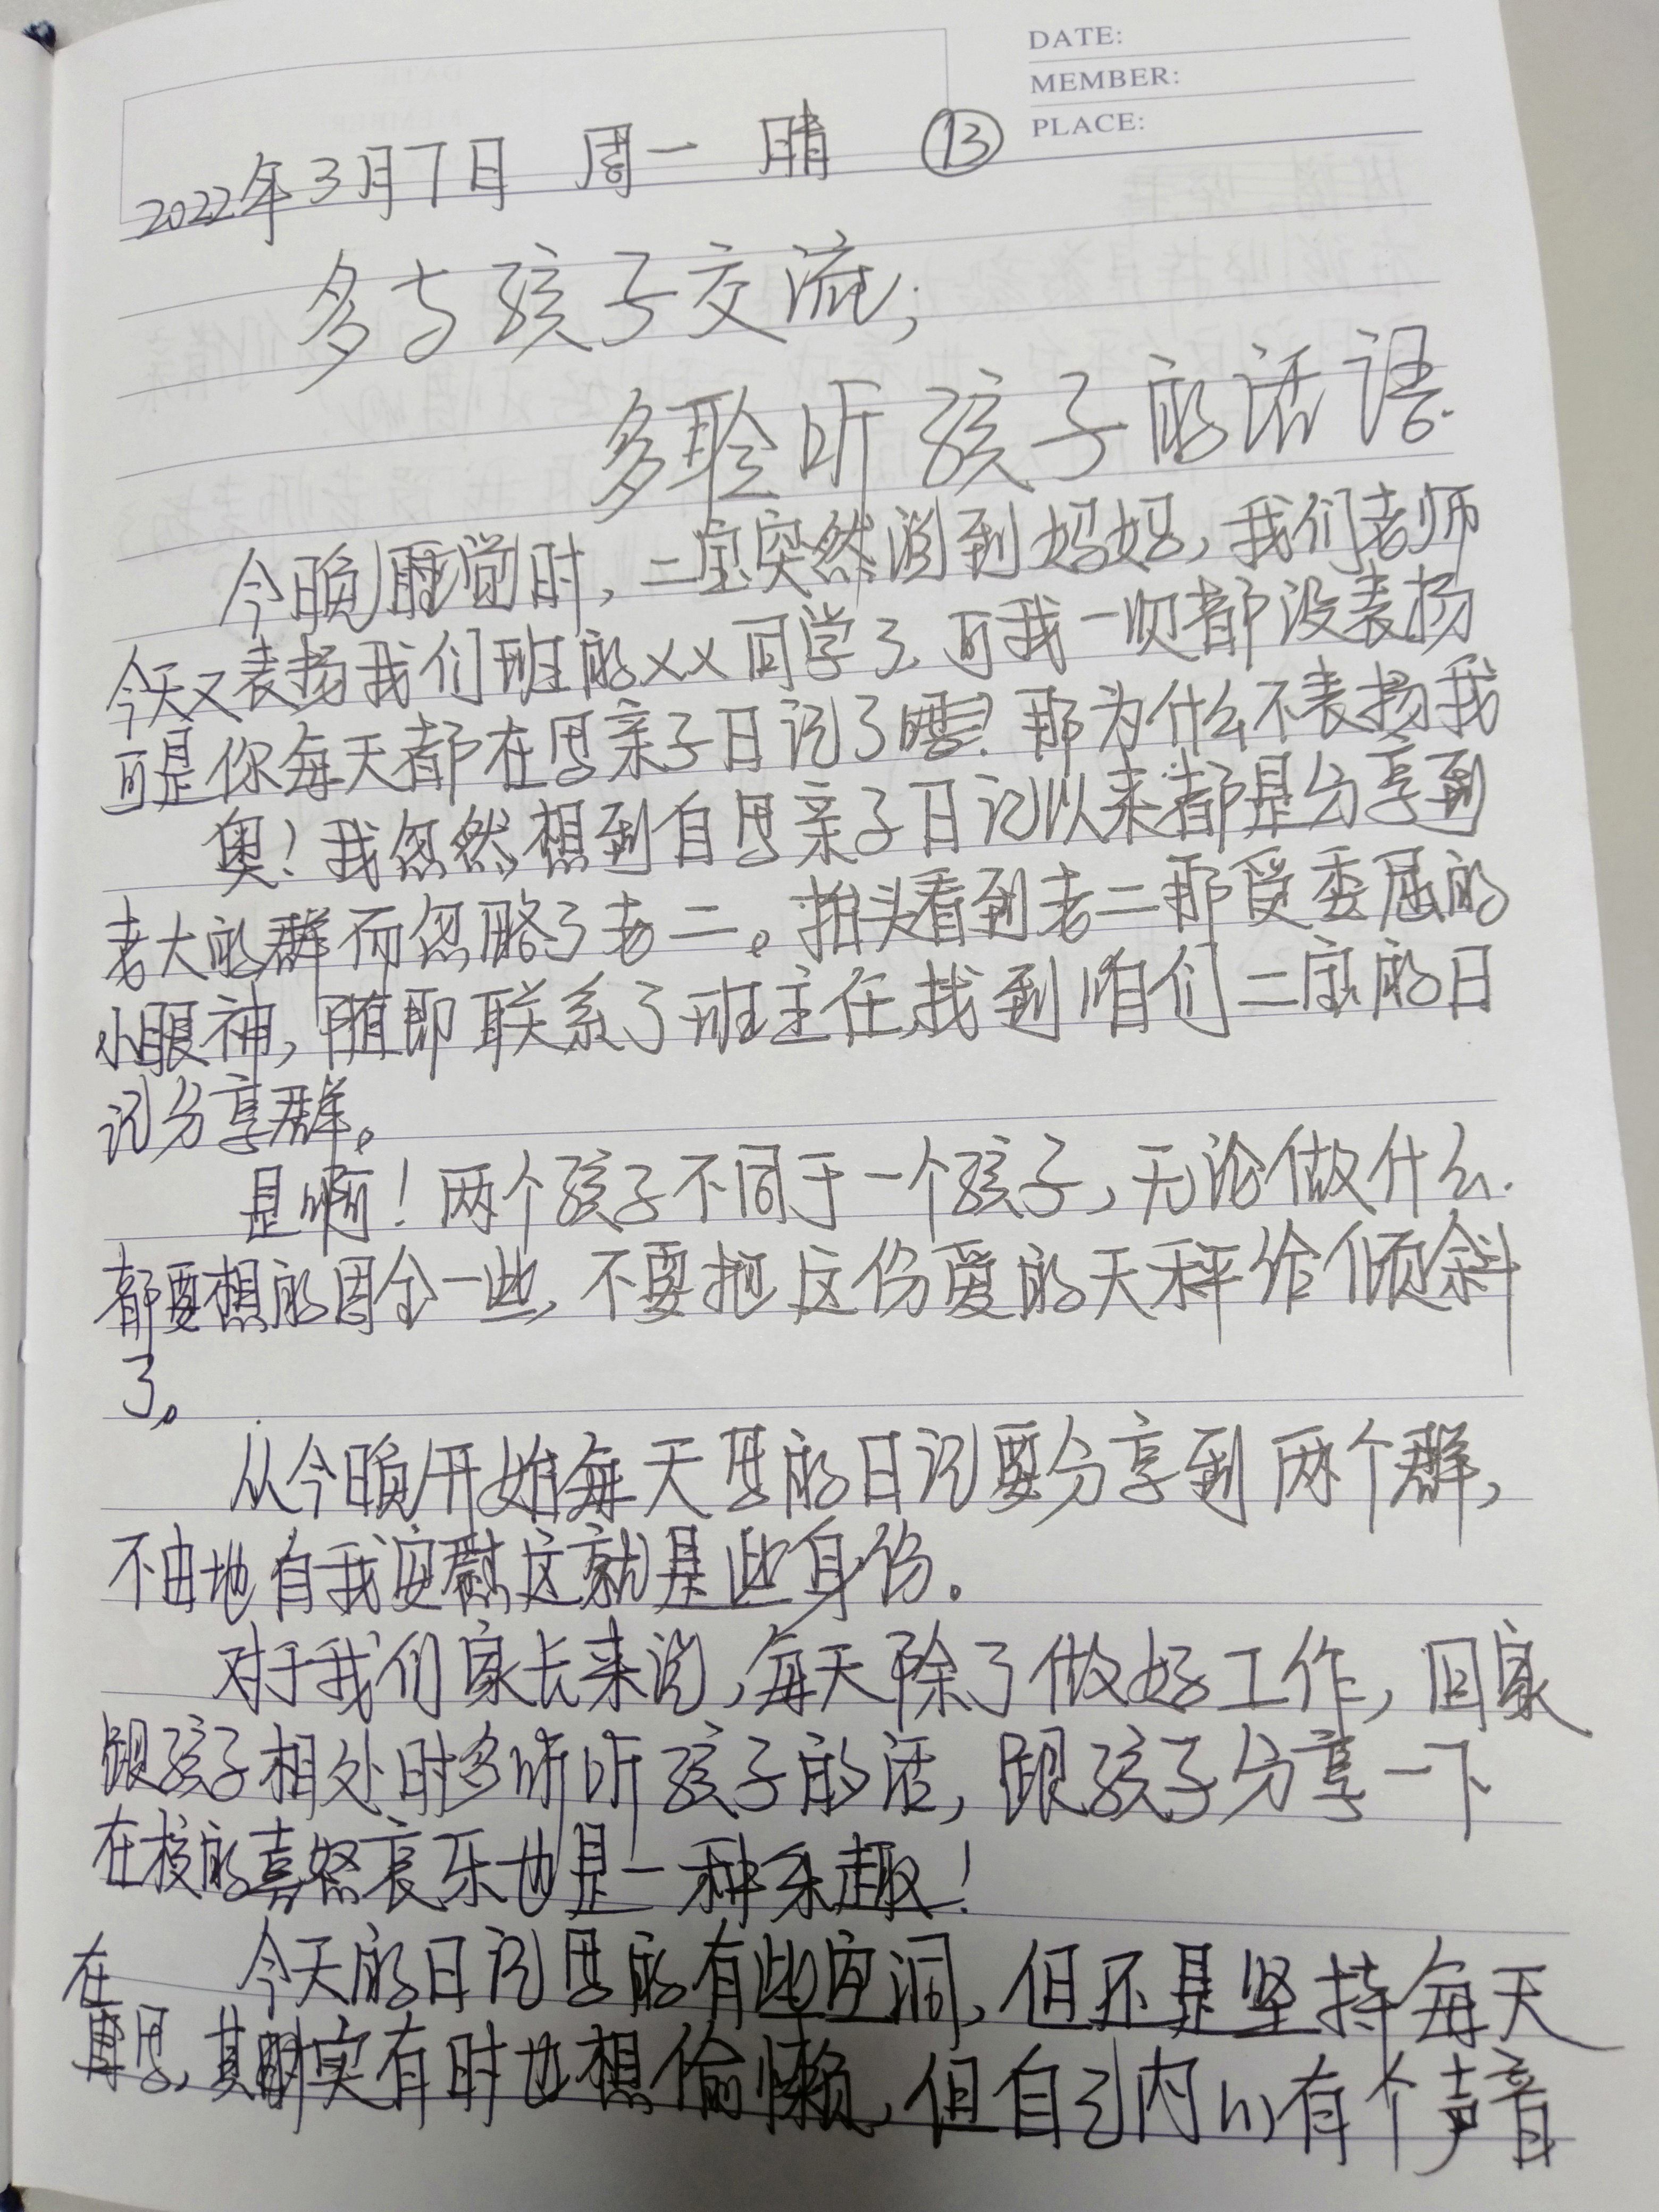 DATE:
MEMBER:
PLACE:
2022年3月7日 周一 晴 ⑬
多与孩子交流;
多聆听孩子的话语.
今晚睡觉时,二宝突然问到妈妈,我们老师
今天又表扬我们班的××同学了,可我一次都没表扬
可是你每天都在写亲子日记了嘿?那为什么不表扬我
奥!我忽然想到自写亲子日记以来都是分享到
老大的群而忽略了老二。抬头看到老二那受委屈的
小眼神,随即联系了班主任,找到咱们二宝的日
记分享群。
是啊!两个孩子不同于一个孩子,无论做什么.
都要想的周全一些,不要把这份爱的天秤给倾斜
了。
从今晚开始每天写的日记要分享到两个群,
不由地自我安慰这就是些身份。
对于我们家长来说,每天除了做好工作,回家
跟孩子相处时多听听孩子的话,跟孩子分享一下
在校的喜怒哀乐也是一种乐趣!
今天的日记写的有些空洞,但还是坚持每天
在
写,其实有时也想偷懒,但自己内心有个声音